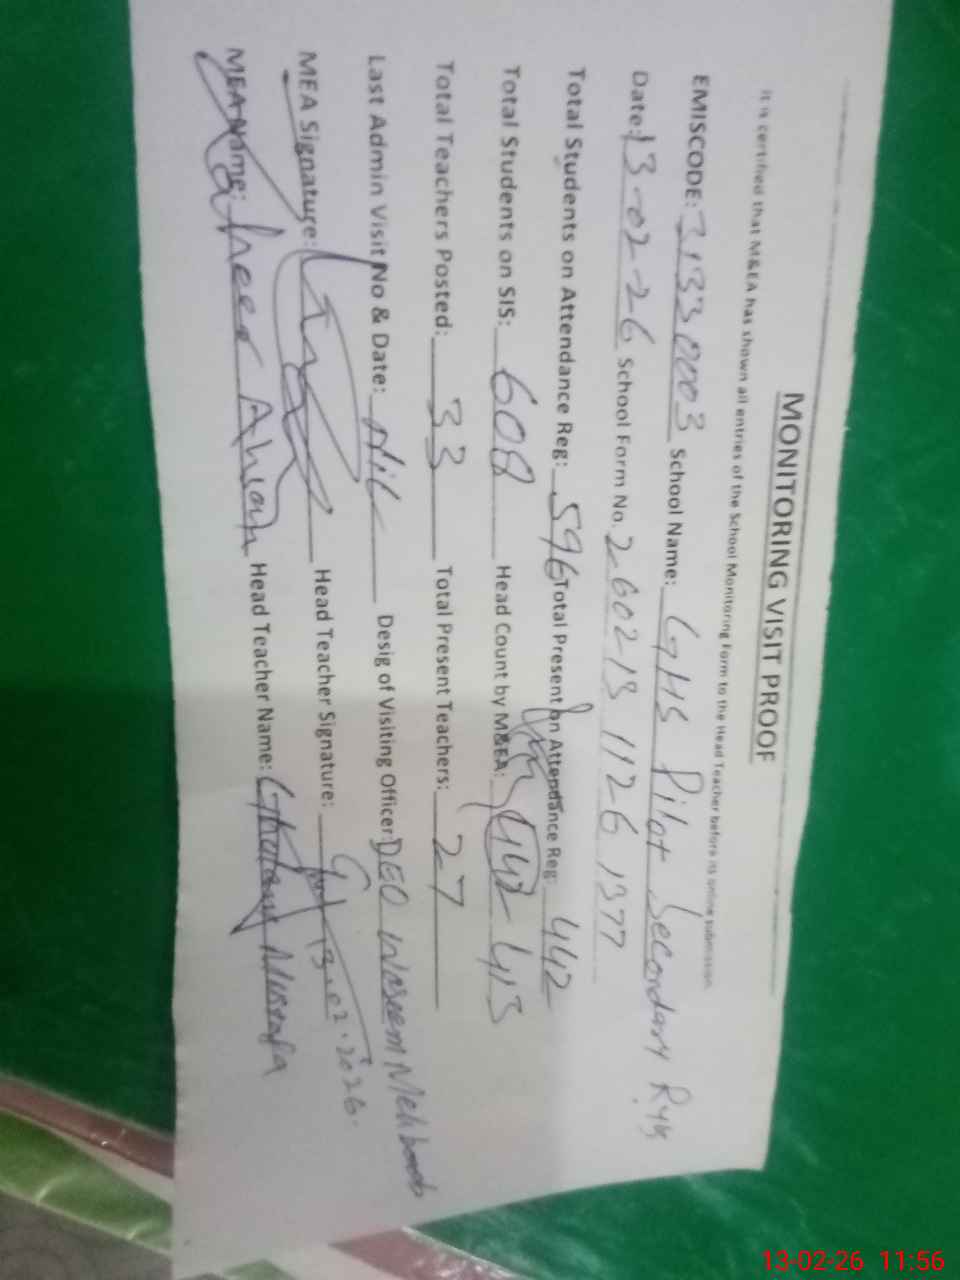 MONITORING VISIT PROOF
It is certified that M&EA has shown all entries of the School Monitoring Form to the Head Teacher before its online submission
EMISCODE: 31330003 School Name: GHS Pilot Secondary Ryk
Date: 13-02-26 School Form No. 2602131126 1377
Total Students on Attendance Reg: 596 Total Present on Attendance Reg: 442
Total Students on SIS: 608 Head Count by M&EA: 442 413
Total Teachers Posted: 33 Total Present Teachers: 27
Last Admin Visit No & Date: Nil Desig of Visiting Officer: DEO Waseem Mehboob
MEA Signature: Head Teacher Signature: 13.02.2026.
MEA Name: Ahsan Head Teacher Name: Ghulam Mustafa
13-02-26 11:56